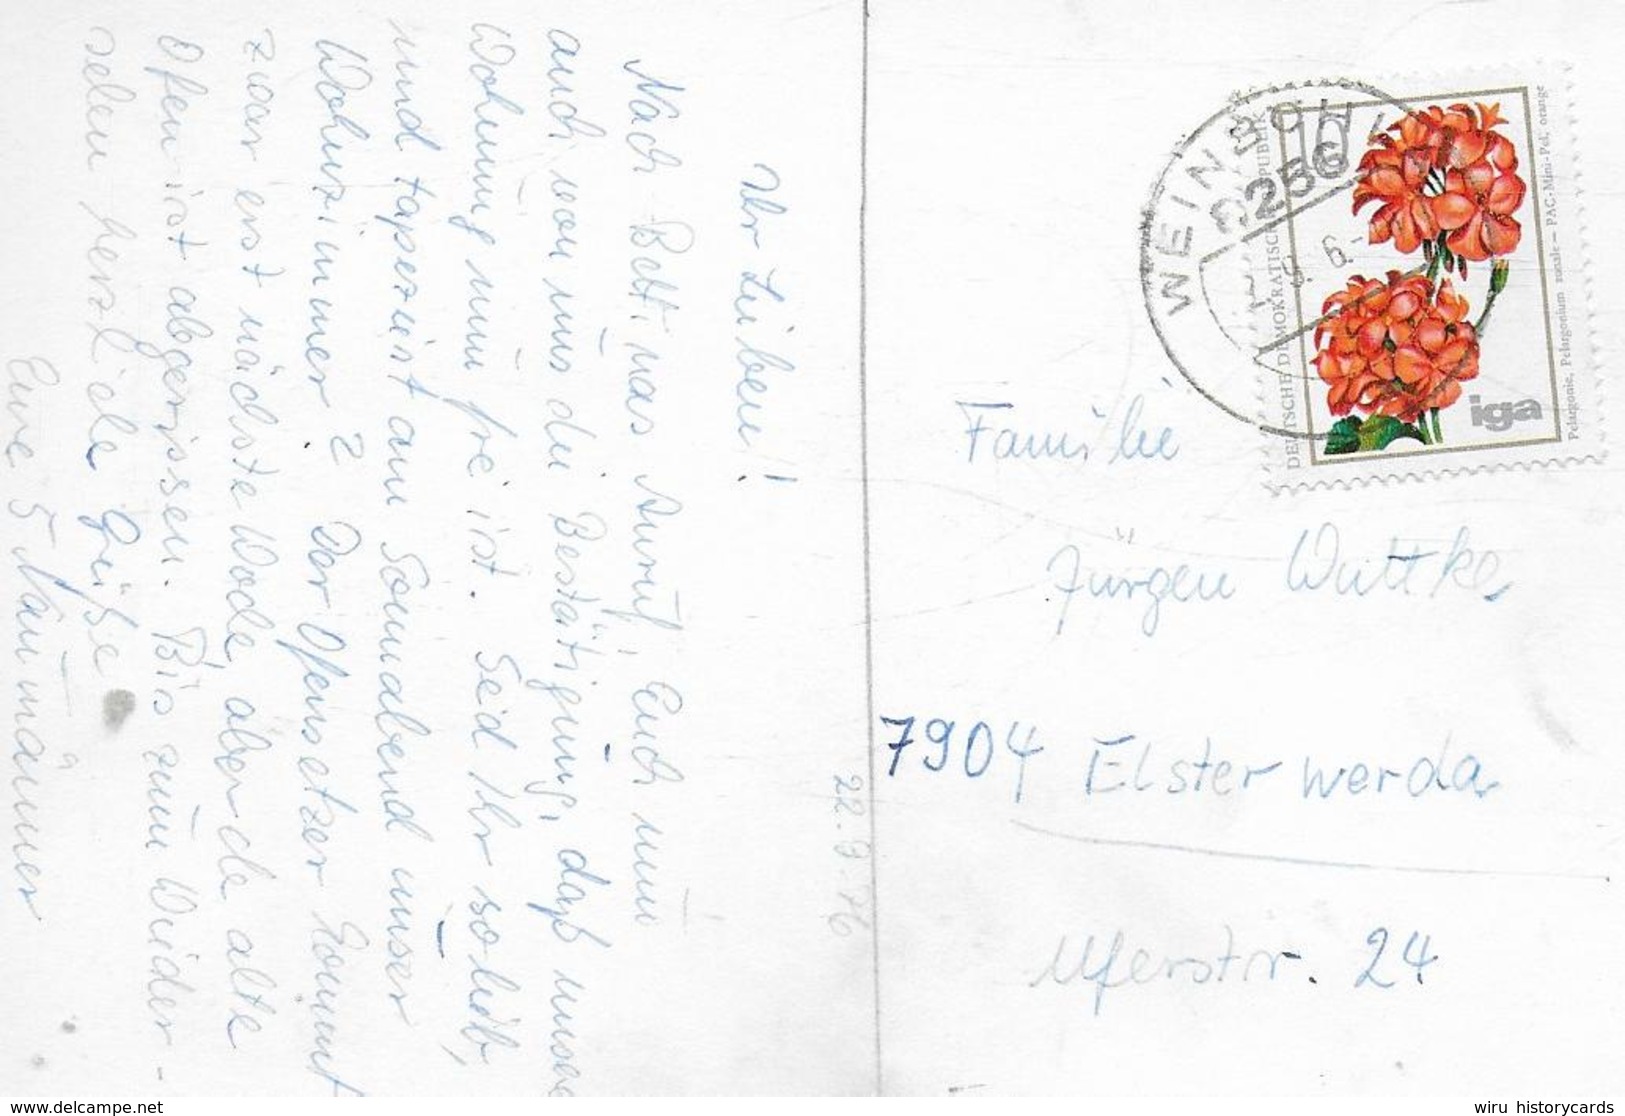 Ihr Lieben!
Nach Bettinas Anruf, Euch nun
auch von uns die Bestätigung, daß unsere
Wohnung nun frei ist. Seid Ihr so lieb,
und tapeziert am Sonnabend unser
Wohnzimmer? Der Ofensetzer kommt
zwar erst nächste Woche, aber der alte
Ofen ist abgerissen. Bis zum Wieder-
sehen herzliche Grüße
Eure 5 Naumänner
22.9.76
WEINBÖHLA
8256
9.6.-
DEUTSCHE DEMOKRATISCHE REPUBLIK
10
iga
Pelargonie, Pelargonium zonale - PAC-Mini-Pel, orange
Familie
Jürgen Wuttke
7904 Elsterwerda
Uferstr. 24
www.delcampe.net
wiru_historycards